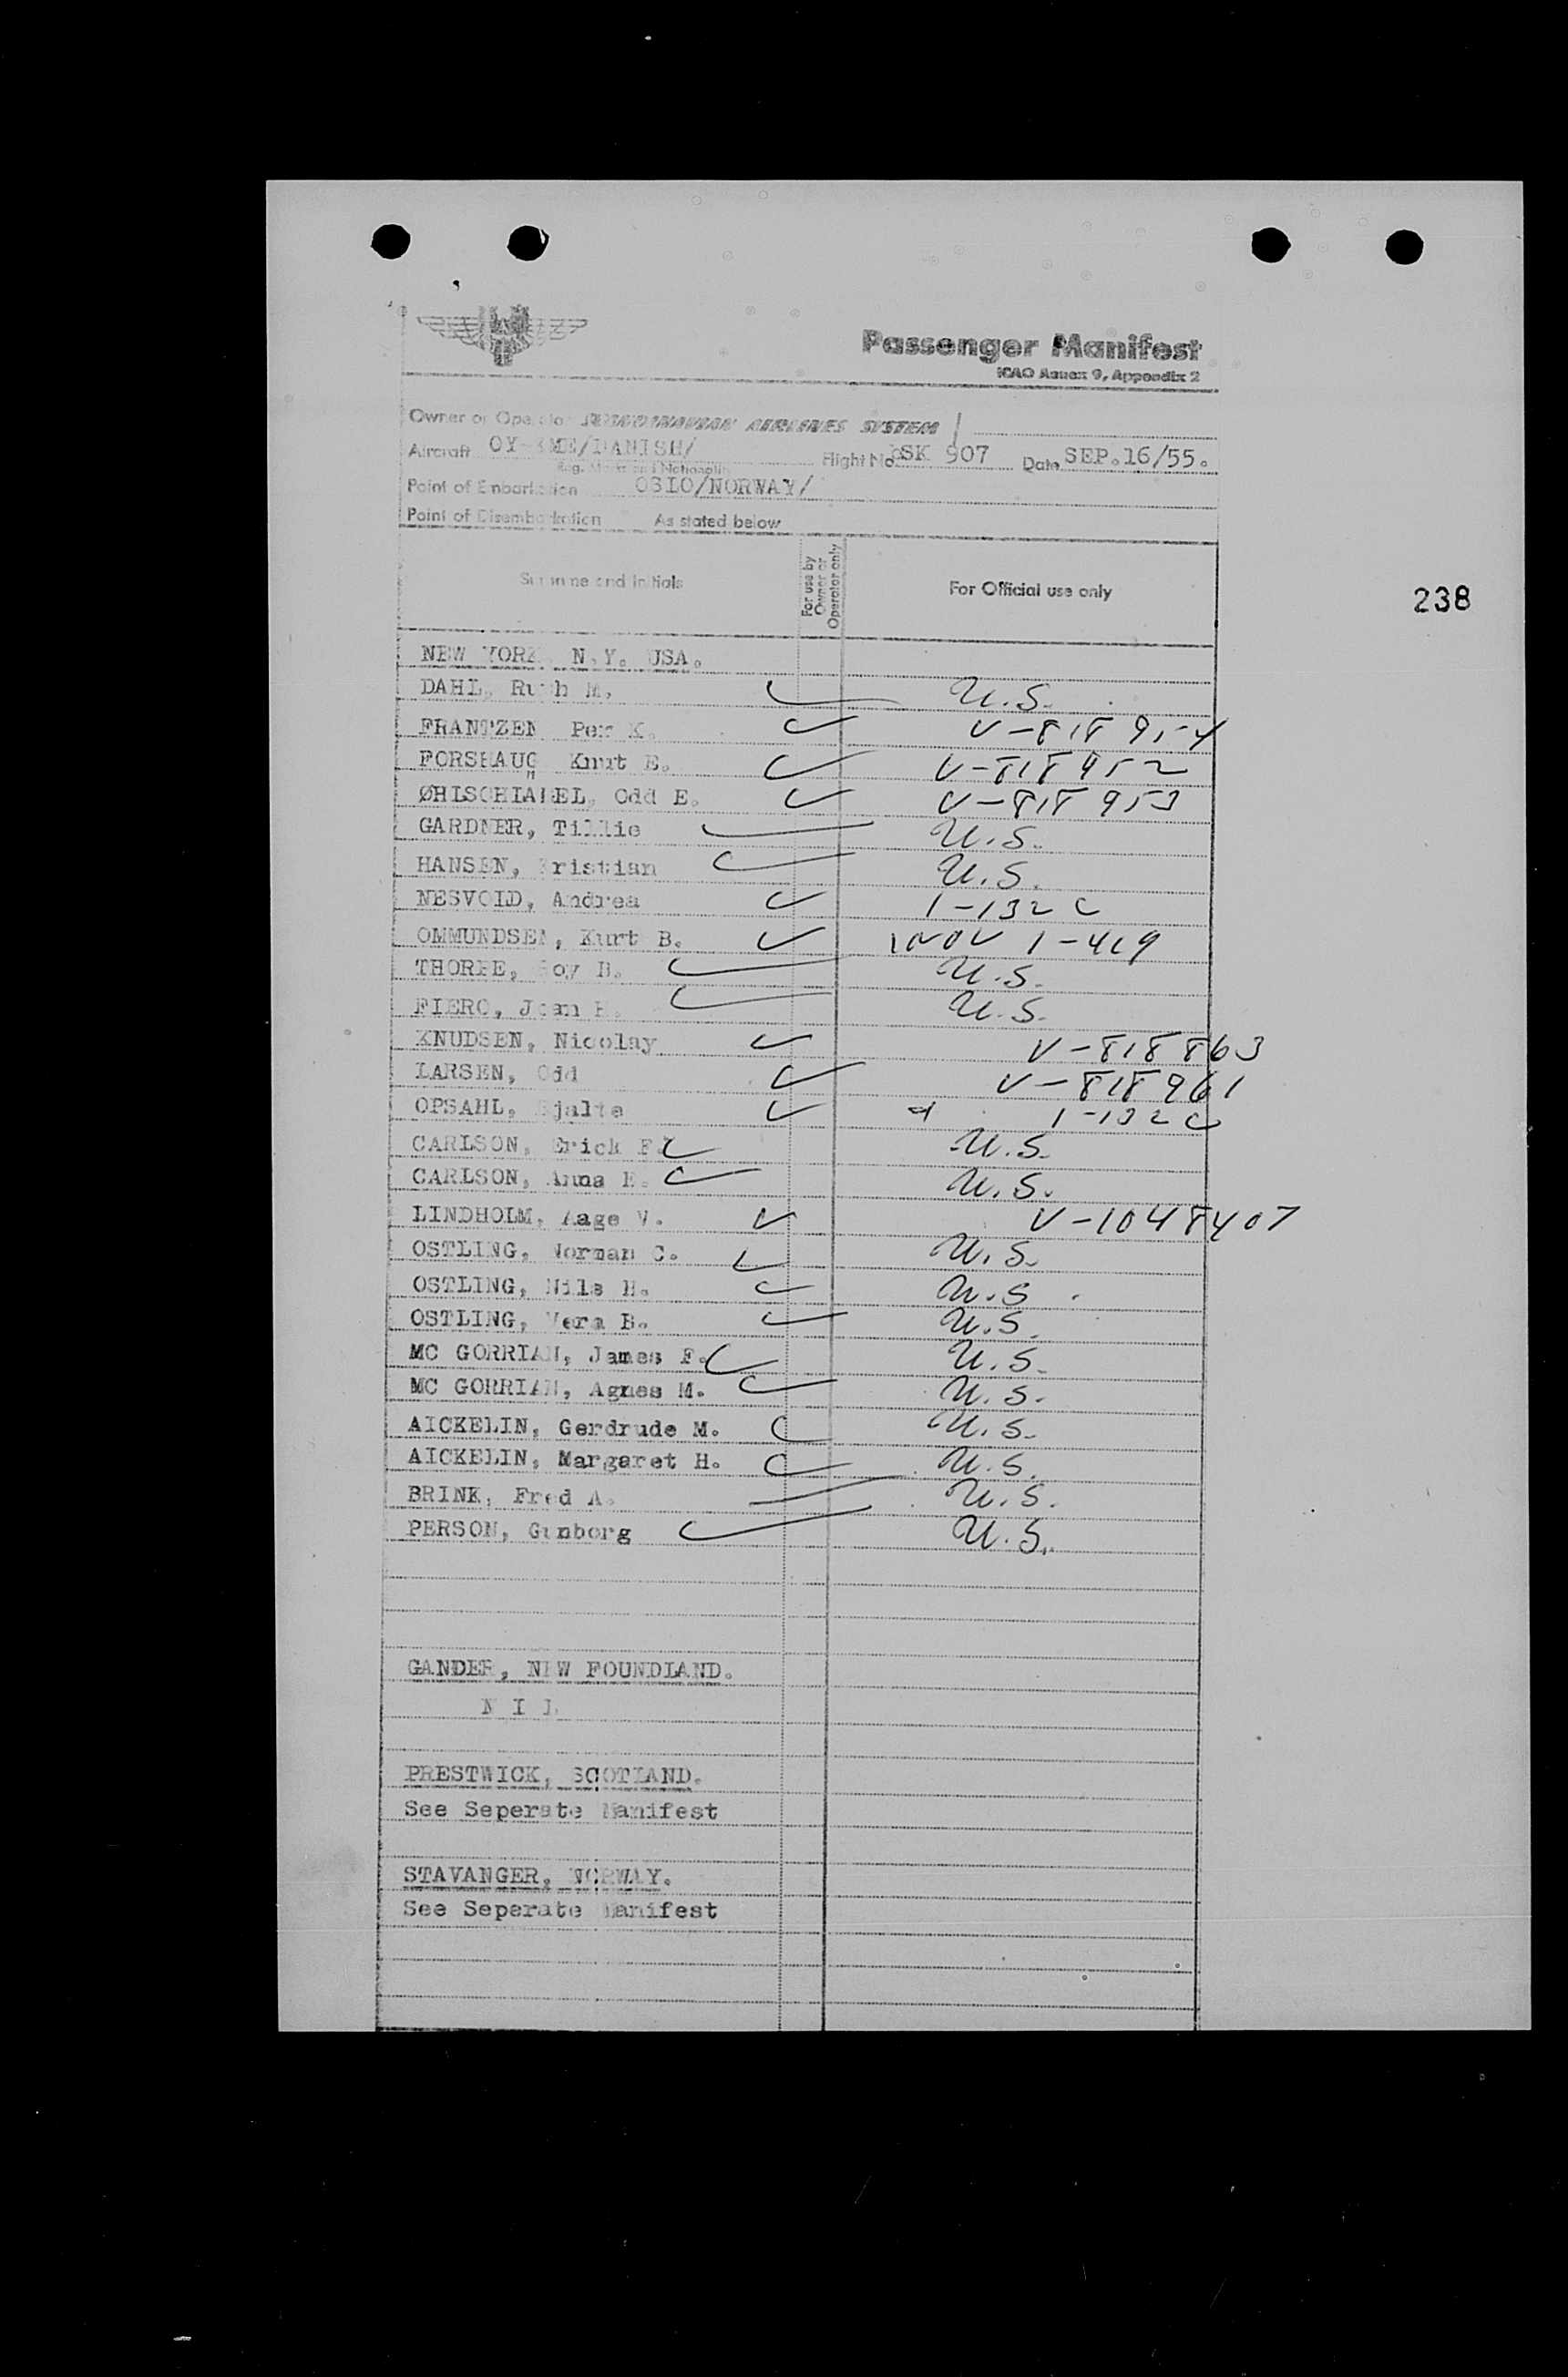 Passenger Manifest
ICAO Annex 9, Appendix 2
Owner or Operator SCANDINAVIAN AIRLINES SYSTEM
Aircraft OY-KME/DANISH/ Flight No. SK 907 Date SEP.16/55.
Reg. Marks and Nationality
Point of Embarkation OSLO/NORWAY/
Point of Disembarkation As stated below
Surname and initials For use by Owner or Operator only For Official use only
238
NEW YORK, N.Y. USA.
DAHL, Ruth M. U.S.
FRANTZEN Per K. V-818954
FORSHAUG Knut E. V-818952
Odd E. V-818953
GARDNER, Tillie U.S.
HANSEN, Kristian U.S.
NESVOLD, Andrea 1-132 C
OMMUNDSEN, Kurt B. 1-419
Roy B. U.S.
FIERO, U.S.
KNUDSEN, Nicolay V-818863
LARSEN, Odd V-818961
OPSAHL, Hjalte 1-132 C
CARLSON, Erick F. U.S.
CARLSON, Anna E. U.S.
LINDHOLM, Aage V. V-1048407
OSTLING, Norman C. U.S.
OSTLING, Nils H. U.S.
OSTLING, Vera B. U.S.
MC GORRIAN, James F. U.S.
MC GORRIAN, Agnes M. U.S.
AICKELIN, Gerdrude M. U.S.
AICKELIN, Margaret H. U.S.
BRINK, Fred A. U.S.
PERSON, Gunborg U.S.
GANDER, NEW FOUNDLAND.
N I L
PRESTWICK, SCOTLAND.
See Seperate Manifest
STAVANGER, NORWAY.
See Seperate Manifest